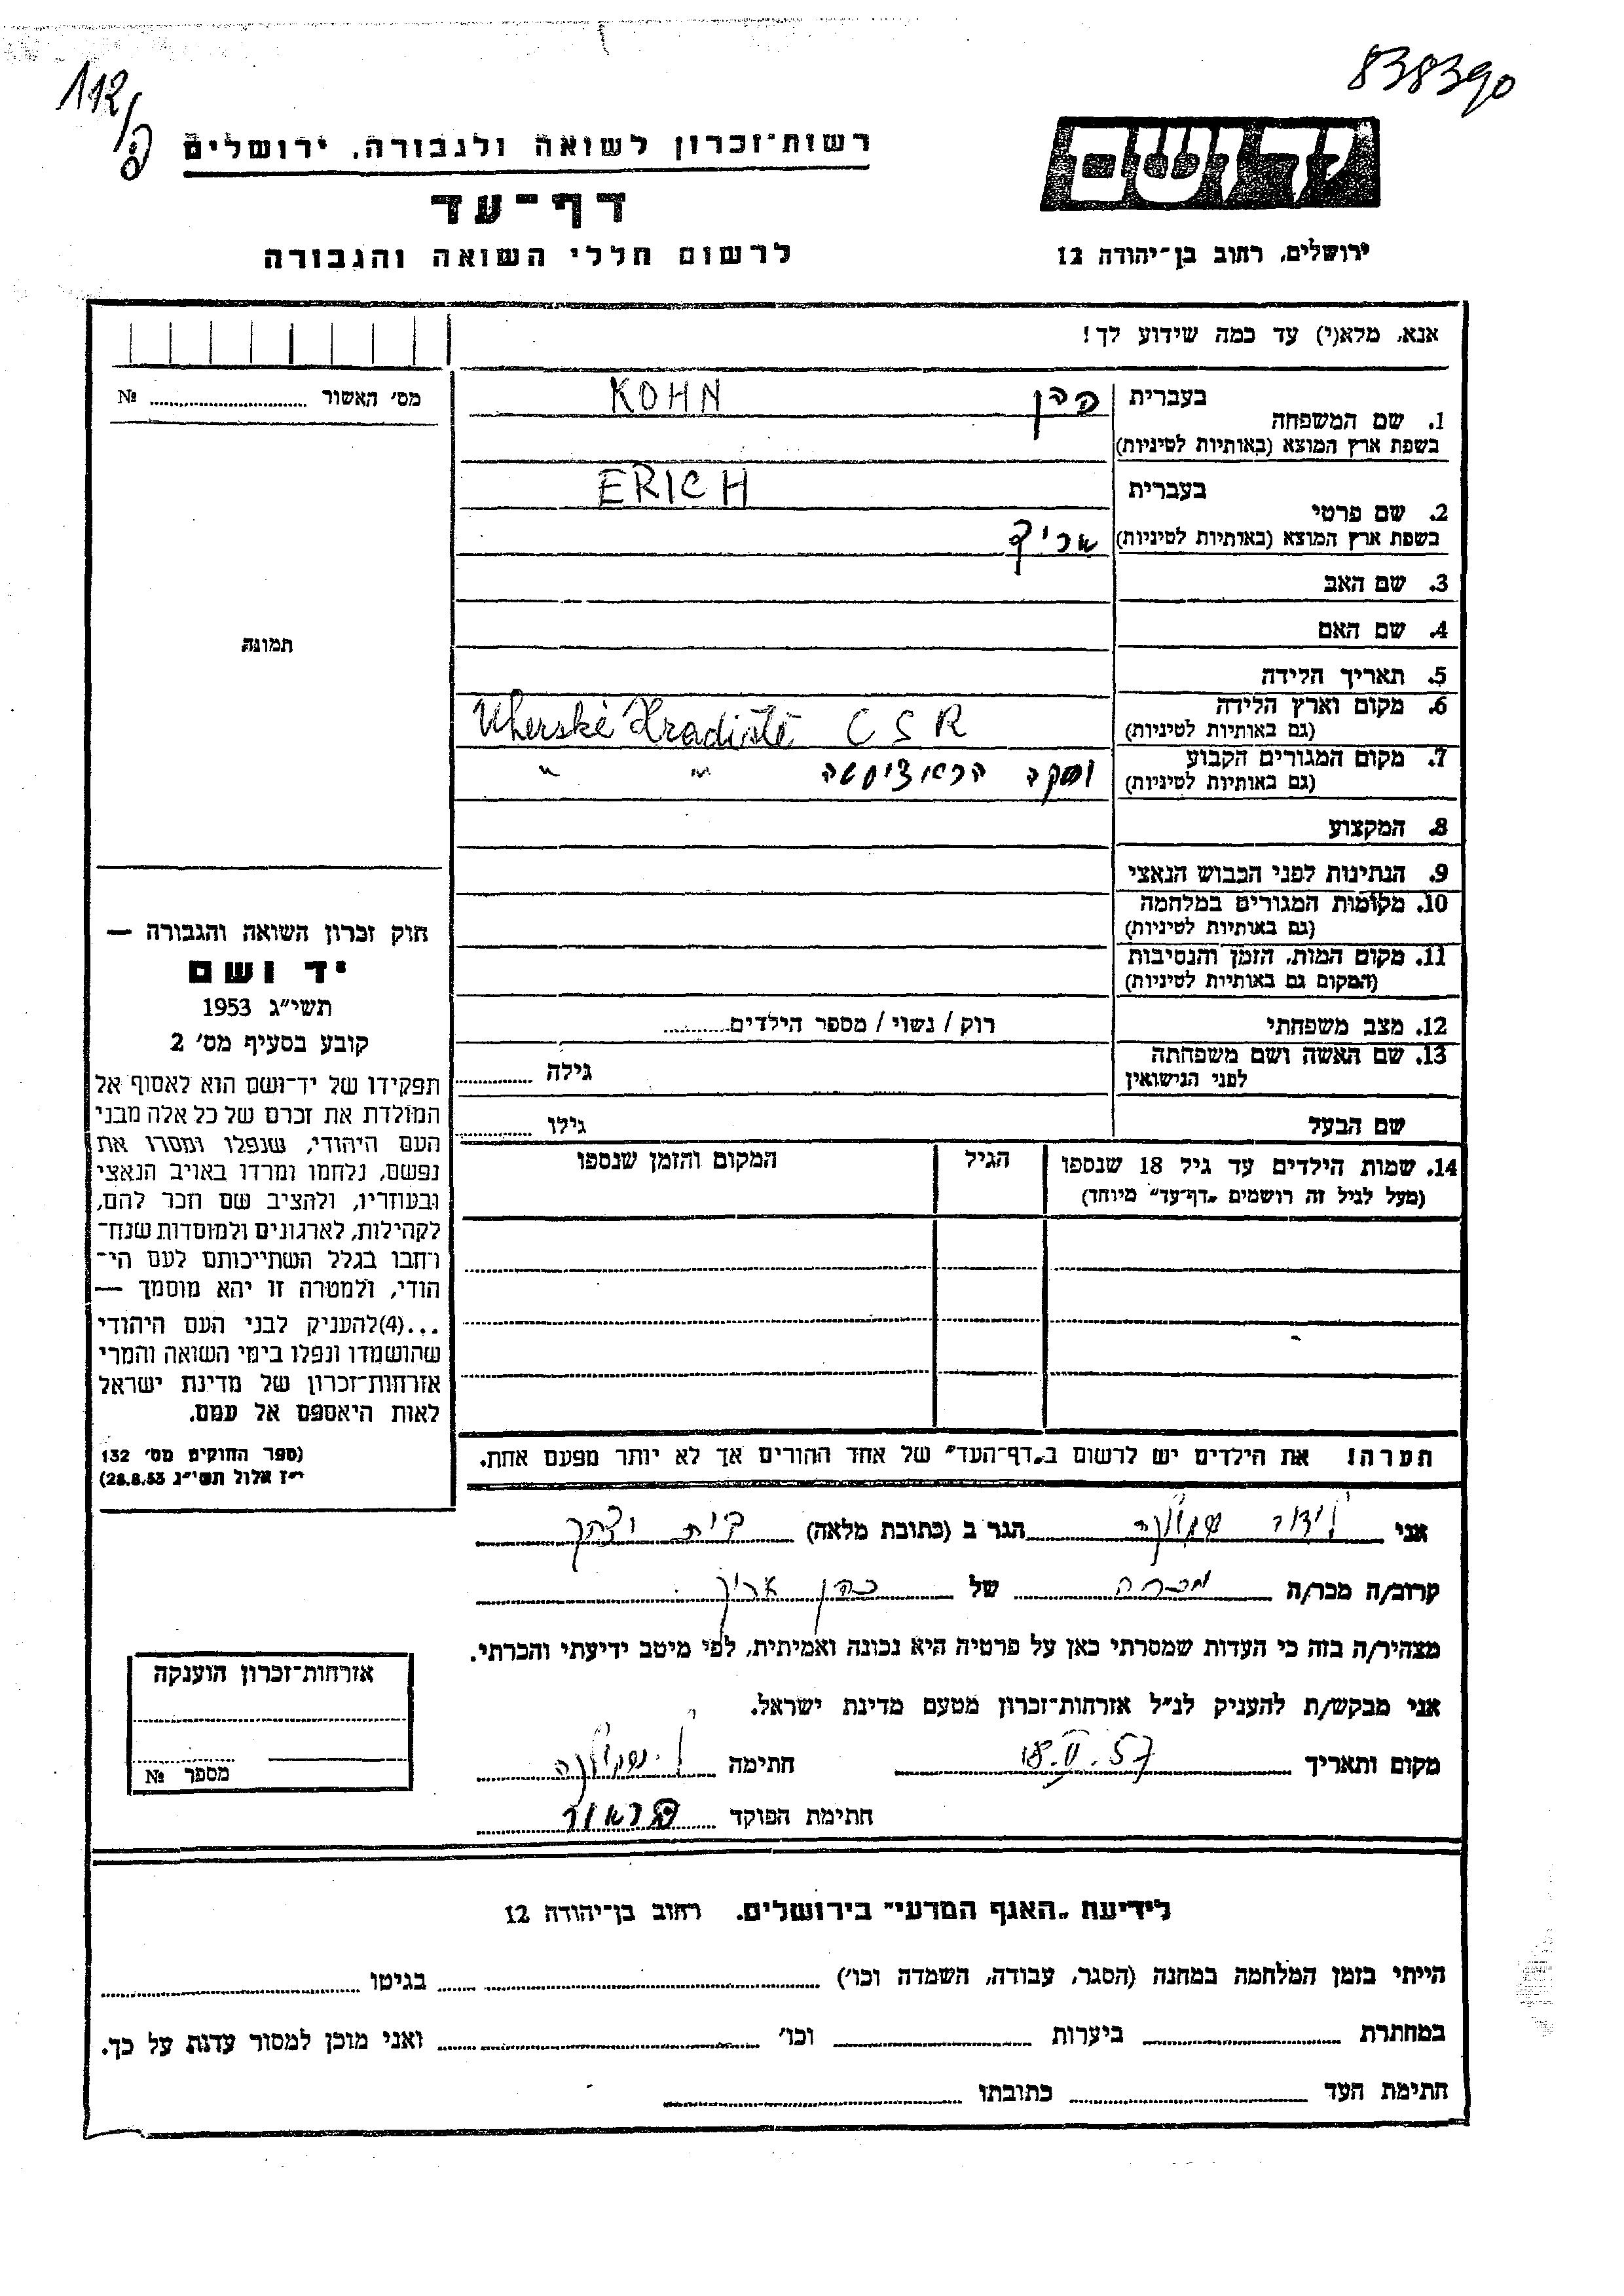 838390
112/ק
יד ושם
רשות־זכרון לשואה ולגבורה, ירושלים
דף־עד
ירושלים, רחוב בן־יהודה 12
לרשום חללי השואה והגבורה
אנא, מלא(י) עד כמה שידוע לך!
מס׳ האשור № 
1. שם המשפחה
בעברית כהן KOHN
בשפת ארץ המוצא (באותיות לטיניות)
2. שם פרטי
בעברית ERICH
בשפת ארץ המוצא (באותיות לטיניות) אריך
3. שם האב
4. שם האם
5. תאריך הלידה
6. מקום וארץ הלידה Uherské Hradiště CSR
(גם באותיות לטיניות)
7. מקום המגורים הקבוע " "
(גם באותיות לטיניות)
8. המקצוע
9. הנתינות לפני הכבוש הנאצי
10. מקומות המגורים במלחמה
(גם באותיות לטיניות)
11. מקום המות, הזמן והנסיבות
(המקום גם באותיות לטיניות)
12. מצב משפחתי רוק / נשוי / מספר הילדים
13. שם האשה ושם משפחתה
לפני הנישואין גילה
שם הבעל גילו
14. שמות הילדים עד גיל 18 שנספו הגיל המקום והזמן שנספו
(מעל לגיל זה רושמים „דף־עד" מיוחד)
תמונה
חוק זכרון השואה והגבורה —
יד ושם
תשי״ג 1953
קובע בסעיף מס׳ 2
תפקידו של יד־ושם הוא לאסוף אל
המולדת את זכרם של כל אלה מבני
העם היהודי, שנפלו ומסרו את
נפשם, נלחמו ומרדו באויב הנאצי
ובעוזריו, ולהציב שם וזכר להם,
לקהילות, לארגונים ולמוסדות שנח־
רחבו בגלל השתייכותם לעם הי־
הודי, ולמטרה זו יהא מוסמך —
...(4)להעניק לבני העם היהודי
שהושמדו ונפלו בימי השואה והמרי
אזרחות־זכרון של מדינת ישראל
לאות היאספם אל עמם.
(ספר החוקים מס׳ 132
י״ז אלול תשי״ג 28.8.53)
הערה! את הילדים יש לרשום ב„דף־העד" של אחד ההורים אך לא יותר מפעם אחת.
אני הגר ב (כתובת מלאה) בית יצחק
קרוב/ה מכר/ה מכרה של כהן אריך
מצהיר/ה בזה כי העדות שמסרתי כאן על פרטיה היא נכונה ואמיתית, לפי מיטב ידיעתי והכרתי.
אני מבקש/ת להעניק לנ״ל אזרחות־זכרון מטעם מדינת ישראל.
מקום ותאריך 18.II.57 חתימה
חתימת הפוקד
אזרחות־זכרון הוענקה
מספר №
לידיעת „האגף המדעי" בירושלים, רחוב בן־יהודה 12
הייתי בזמן המלחמה במחנה (הסגר, עבודה, השמדה וכו׳) בגיטו
במחתרת ביערות וכו׳ ואני מוכן למסור עדות על כך.
חתימת העד כתובתו